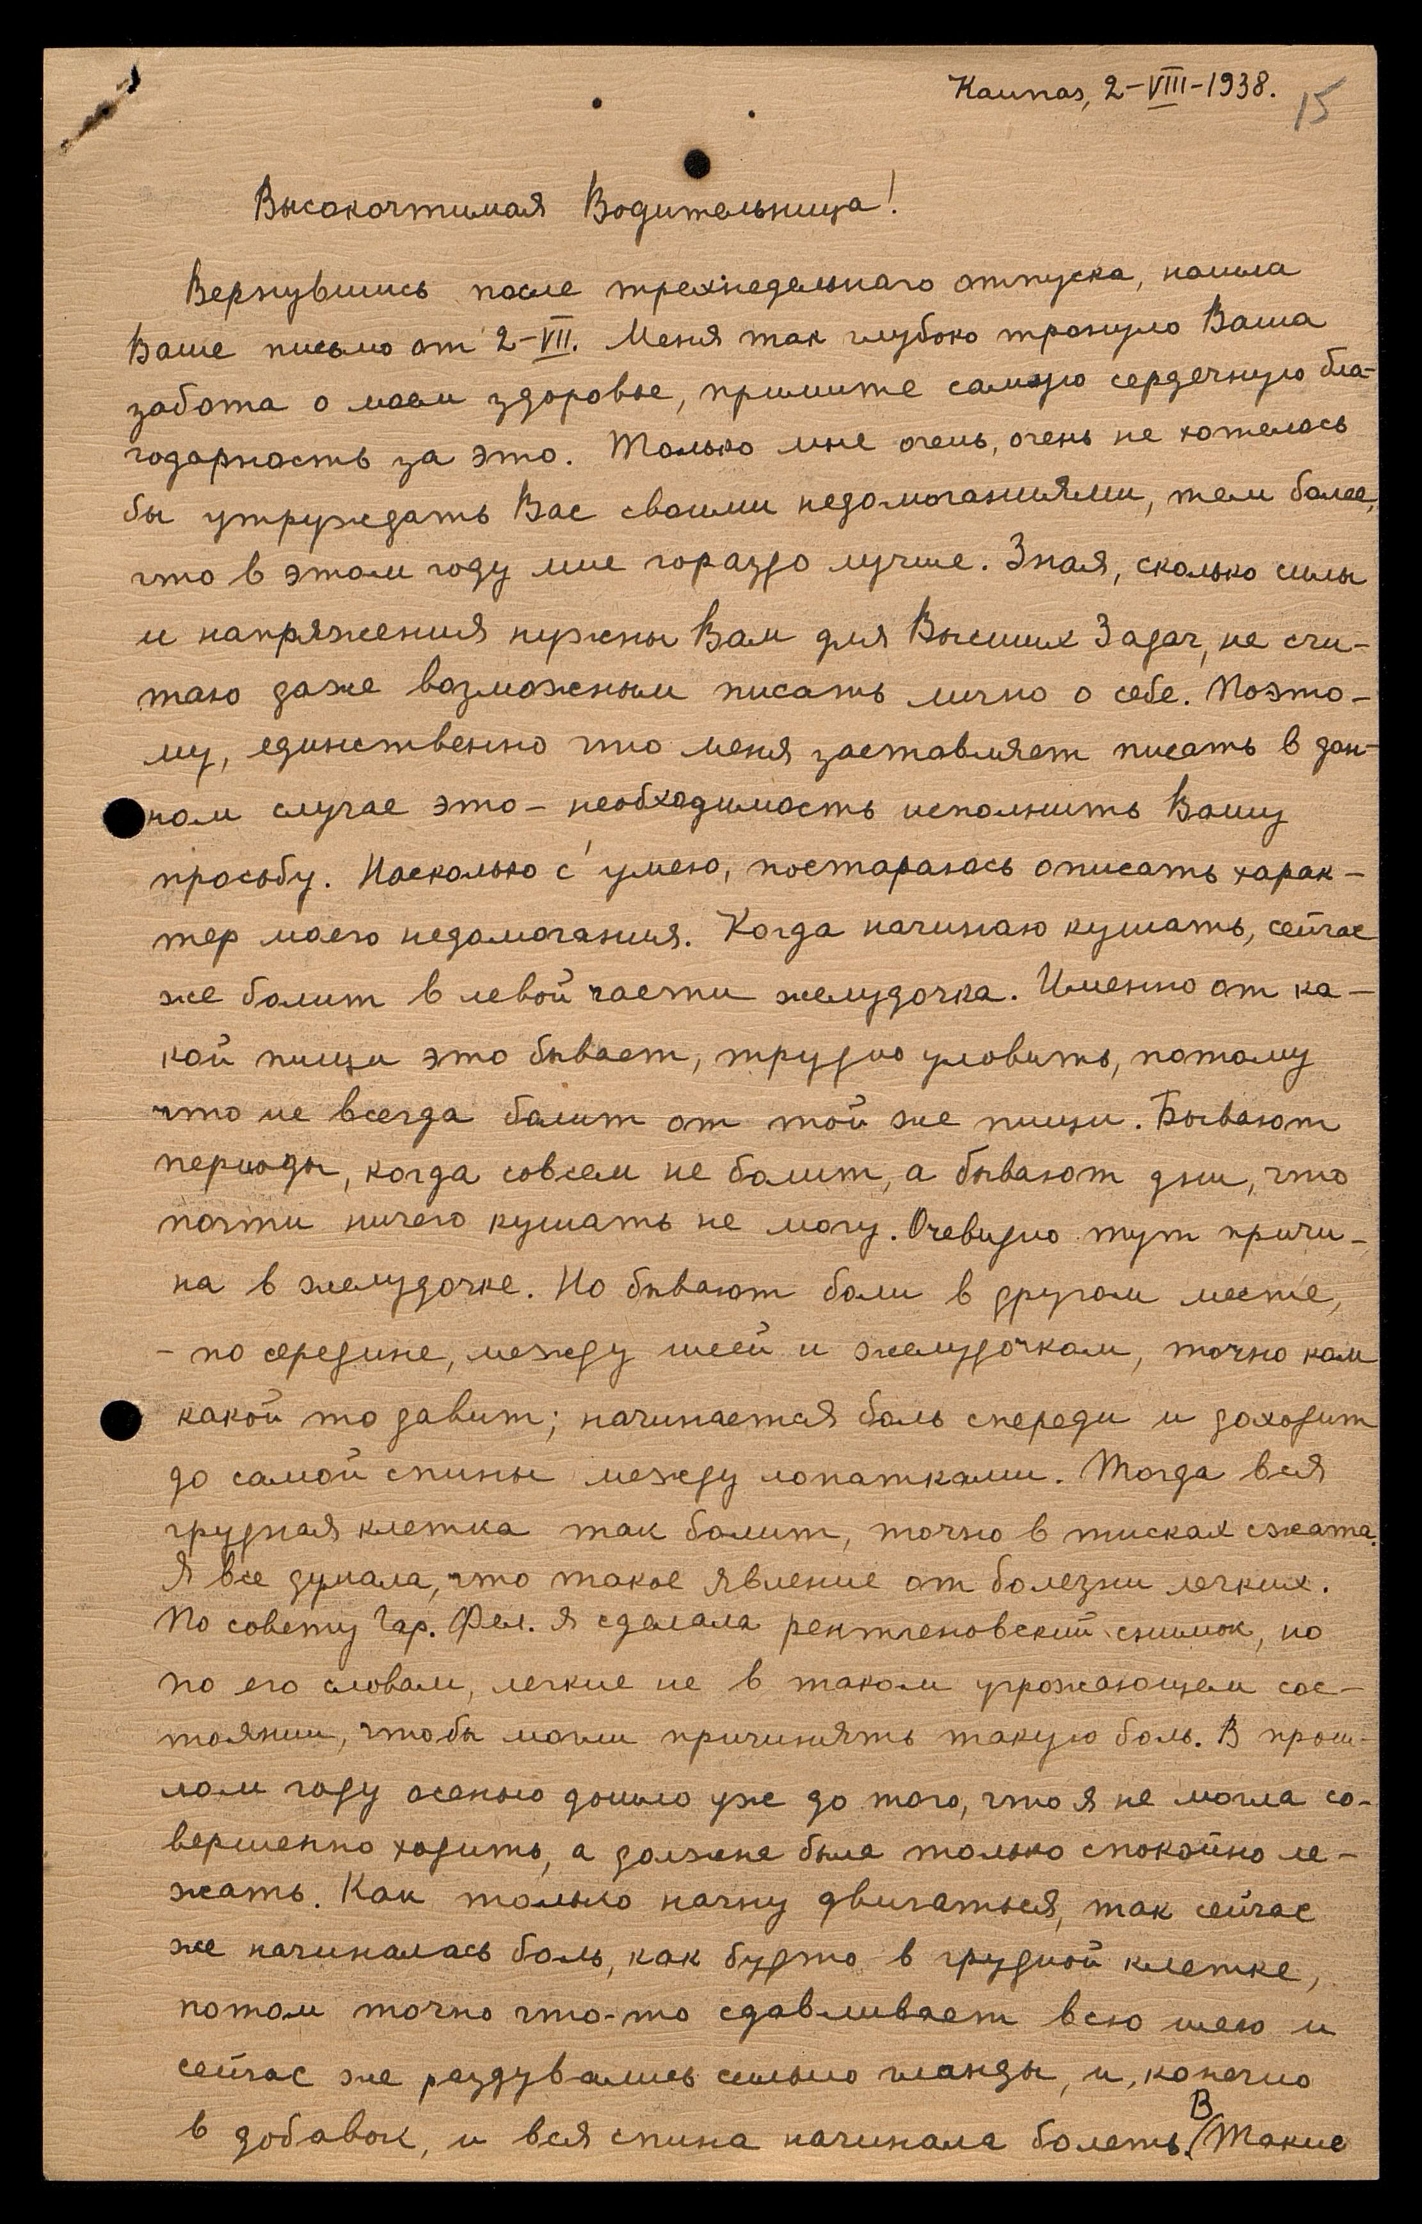 Kaunas, 2-VIII-1938.
15
Высокочтимая Водительница!
Вернувшись после трехнедельного отпуска, нашла
Ваше письмо от 2-VII. Меня так глубоко тронуло Ваша
забота о моем здоровье, примите самую сердечную бла-
годарность за это. Только мне очень, очень не хотелось
бы утруждать Вас своими недомоганиями, тем более,
что в этом году мне гораздо лучше. Зная, сколько силы
и напряжения нужны Вам для Высших Задач, не счи-
таю даже возможным писать лично о себе. Поэто-
му, единственно что меня заставляет писать в дан-
ном случае это - необходимость исполнить Вашу
просьбу. Насколько с'умею, постараюсь описать харак-
тер моего недомогания. Когда начинаю кушать, сейчас
же болит в левой части желудочка. Именно от ка-
кой пищи это бывает, трудно уловить, потому
что не всегда болит от той же пищи. Бывают
периоды, когда совсем не болит, а бывают дни, что
почти ничего кушать не могу. Очевидно тут причи-
на в желудочке. Но бывают боли в другом месте,
- по середине, между шеей и желудочком, точно ком
какой то давит; начинается боль спереди и доходит
до самой спины между лопатками. Тогда вся
грудная клетка так болит, точно в тисках сжата.
Я все думала, что такое явление от болезни легких.
По совету Гар. Фел. я сделала рентгеновский снимок, но
по его словам, легкие не в таком угрожающем сос-
тоянии, чтобы могли причинять такую боль. В прош-
лом году осенью дошло уже до того, что я не могла со-
вершенно ходить, а должна была только спокойно ле-
жать. Как только начну двигаться, так сейчас
же начиналась боль, как будто в грудной клетке,
потом точно что-то сдавливает всю шею и
сейчас же раздувались сильно гланды, и, конечно
в добавок, и вся спина начинала болеть. (В Такие